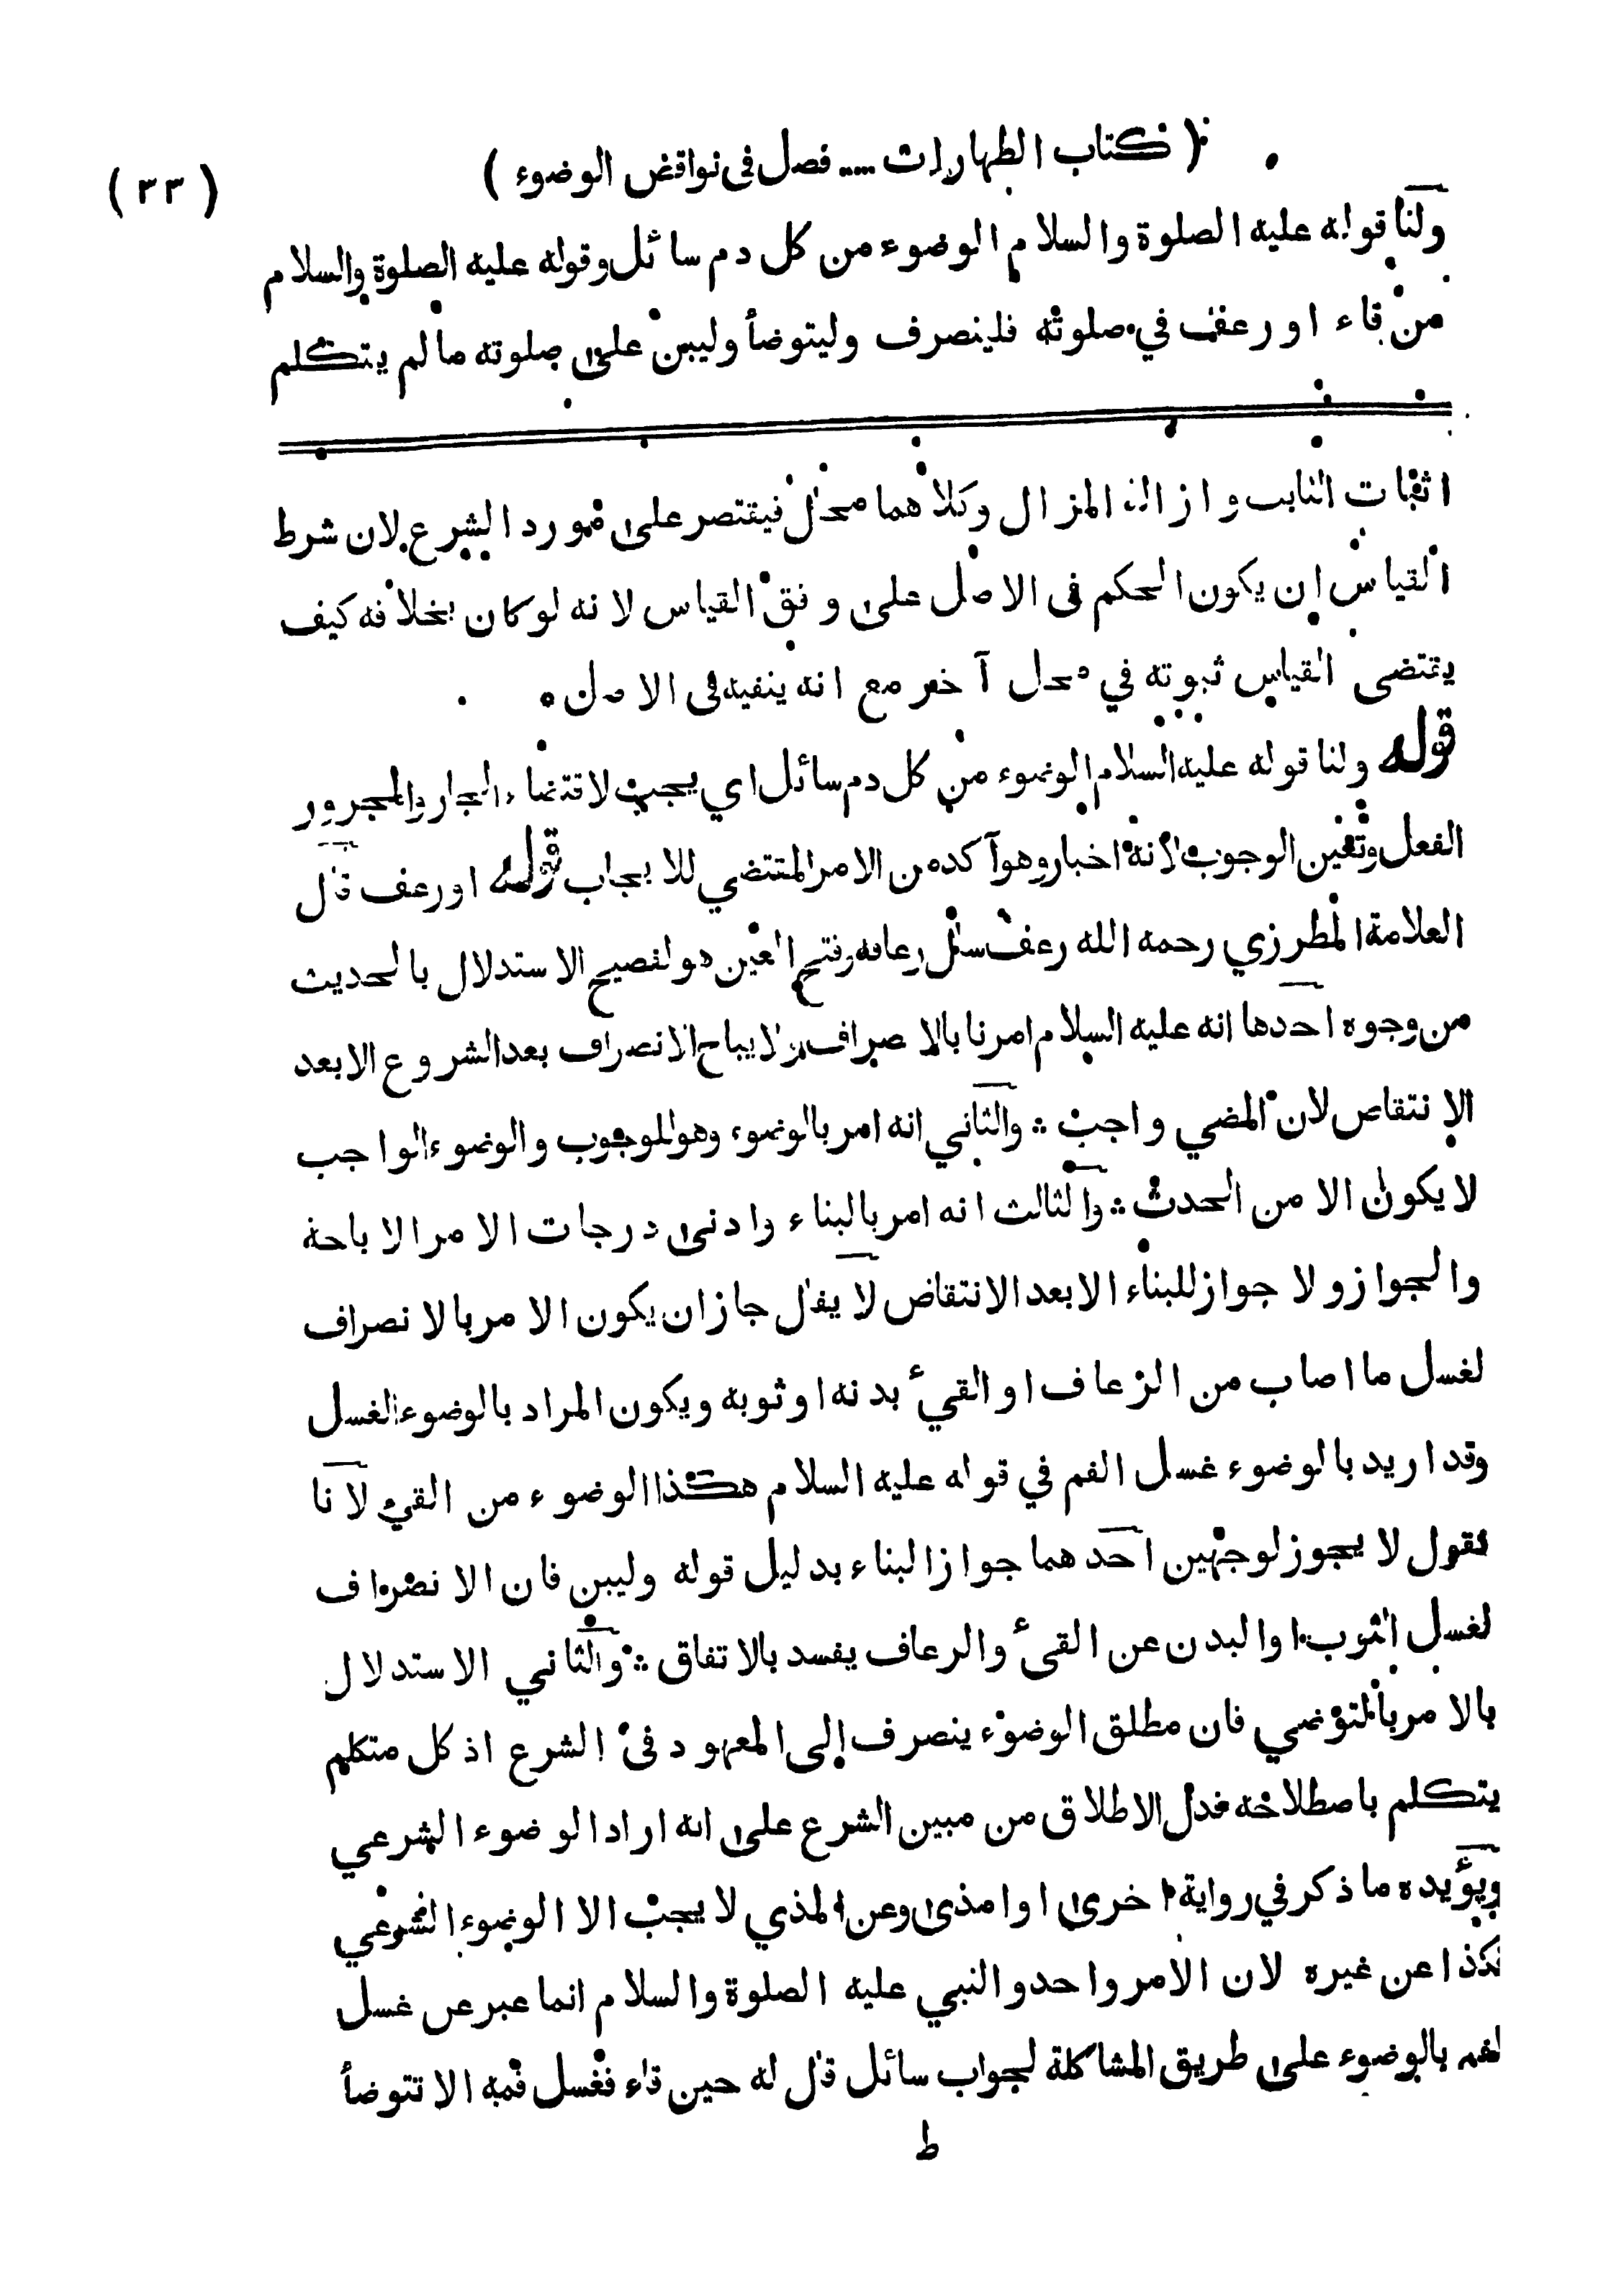 ( كتاب الطهارات .... فصل في نواقض الوضوء ) ( ٣٣ )
ولنا قوله عليه الصلوة والسلام الوضوء من كل دم سائل وقوله عليه الصلوة والسلام
من قاء او رعف في صلوته فلينصرف وليتوضأ وليبن على صلوته ما لم يتكلم
اثبات الثابت وازالة المزال وكلاهما محال فيقتصر على مورد الشرع لان شرط
القياس ان يكون الحكم في الاصل على وفق القياس لانه لو كان بخلافه كيف
يقتضى القياس ثبوته في محل آخر مع انه ينفيه فى الاصل ه
قوله ولنا قوله عليه السلام الوضوء من كل دم سائل اي يجب لاقتضاء الجار والمجرور
الفعل وتعين الوجوب لانه اخبار وهو آكد من الامر المقتضي للايجاب قوله او رعف قال
العلامة المطرزي رحمه الله رعف سال رعافه وفتح العين هو الفصيح الاستدلال بالحديث
من وجوه احدها انه عليه السلام امرنا بالا صراف ولا يباح الانصراف بعد الشروع الا بعد
الانتقاص لان المضي واجب ؞ والثاني انه امر بالوضوء وهو للوجوب والوضوء الواجب
لا يكون الا من الحدث ؞ والثالث انه امر بالبناء وادنى درجات الامر الاباحة
والجواز ولا جواز للبناء الا بعد الانتقاض لا يقال جاز ان يكون الامر بالانصراف
لغسل ما اصاب من الرعاف او القيء بدنه او ثوبه ويكون المراد بالوضوء الغسل
وقد اريد بالوضوء غسل الفم في قوله عليه السلام هكذا الوضوء من القيء لانا
نقول لا يجوز لوجهين احدهما جواز البناء بدليل قوله وليبن فان الانصراف
لغسل الثوب او البدن عن القىء والرعاف يفسد بالاتفاق ؞ والثاني الاستدلال
بالامر بالتوضي فان مطلق الوضوء ينصرف الى المعهود في الشرع اذ كل متكلم
يتكلم باصطلاحه فدل الاطلاق من مبين الشرع على انه اراد الوضوء الشرعي
ويؤيده ما ذكر في رواية اخرى او امذى وعن المذي لا يجب الا الوضوء الشرعي
فكذا عن غيره لان الامر واحد والنبي عليه الصلوة والسلام انما عبر عن غسل
لفم بالوضوء على طريق المشاكلة لجواب سائل قال له حين قاء فغسل فمه الا تتوضأ
ط